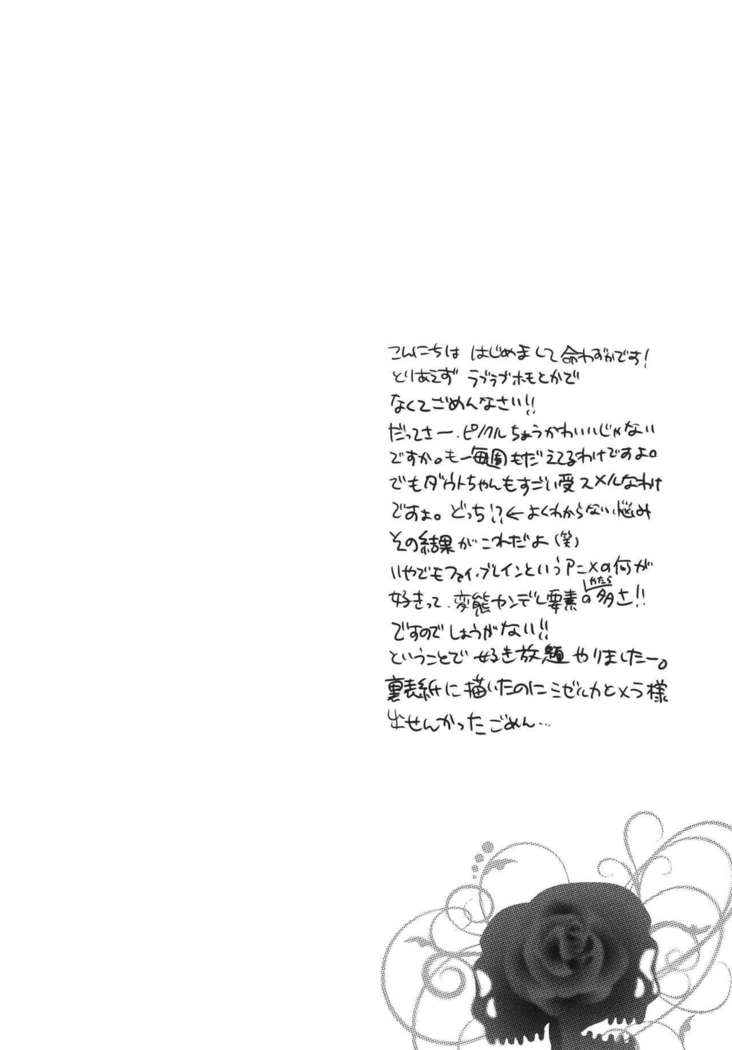 こんにちは はじめまして 命わずかです!
とりあえず ラブラブホモとかで
なくてごめんなさい!!
だってさー、ピノクルちょうかわいいじゃない
ですか。もー毎週もだえてるわけですよ。
でもダウトちゃんもすごい受スメルなわけ
ですよ。どっち!?←よくわからない悩み
その結果がこれだよ(笑)
いやでもファイ・ブレインというアニメの何が
好きって、変態ヤンデレ要素の多さ!!
ですのでしょうがない!!
ということで 好き放題 やりましたー。
裏表紙に描いたのにミゼルカとメラ様
出せんかったごめん…